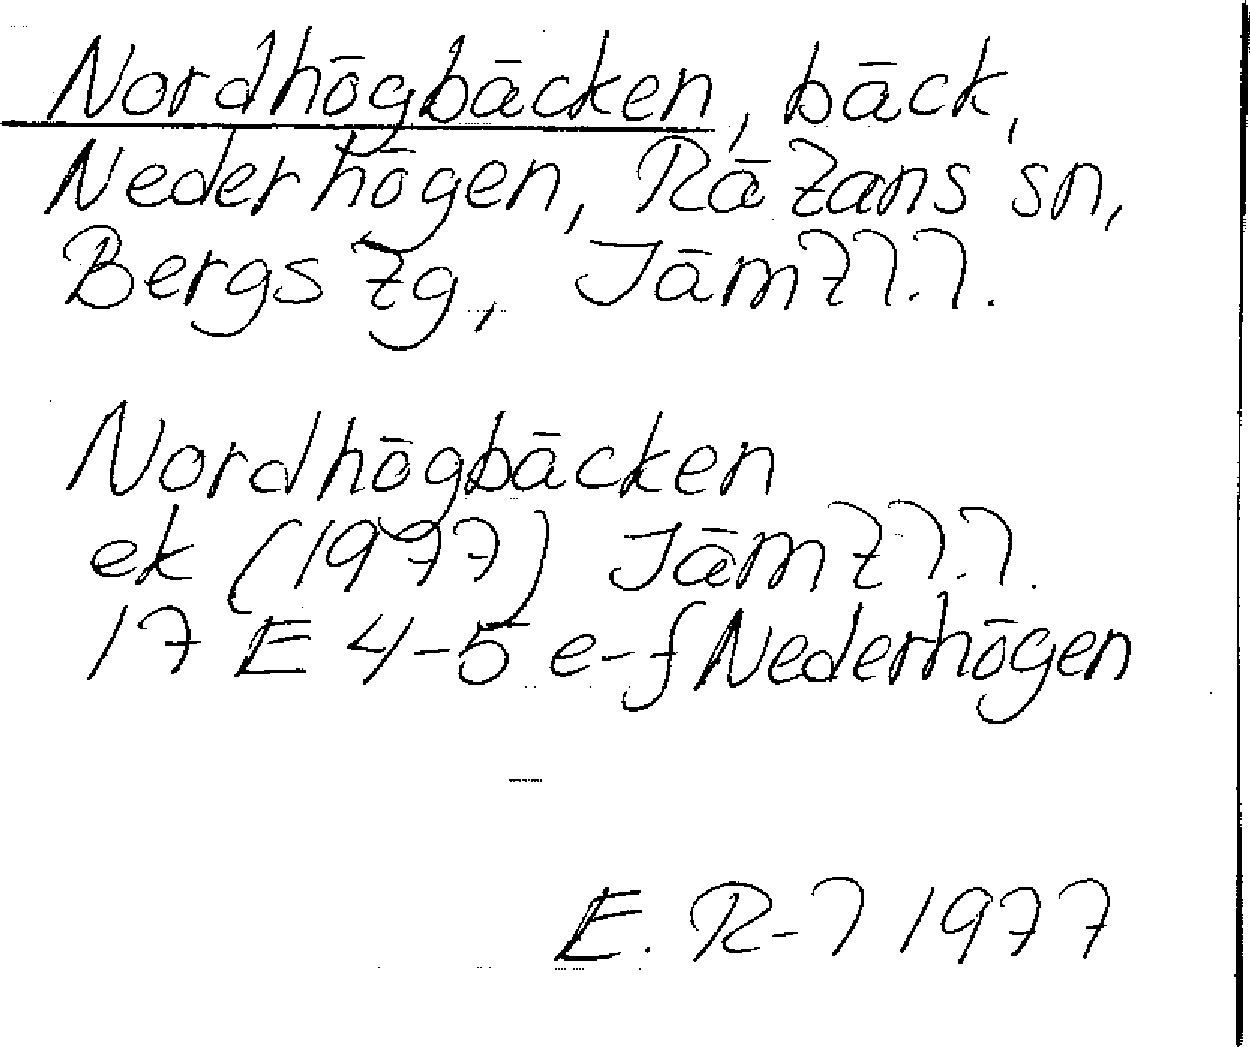 Nordhögbäcken, bäck,
Nederhögen, Rätans sn,
Bergs tg, Jämtl.l.
Nordhögbäcken
ek (1977) Jämtl.l.
17 E 4-5 e-f Nederhögen
E. R-l 1977